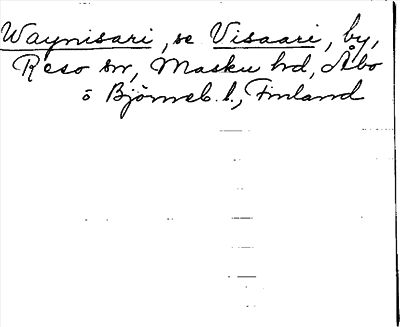 Waynisari, se Visaari, by,
Reso sn, Masku hd, Åbo
o Björneb. l., Finland